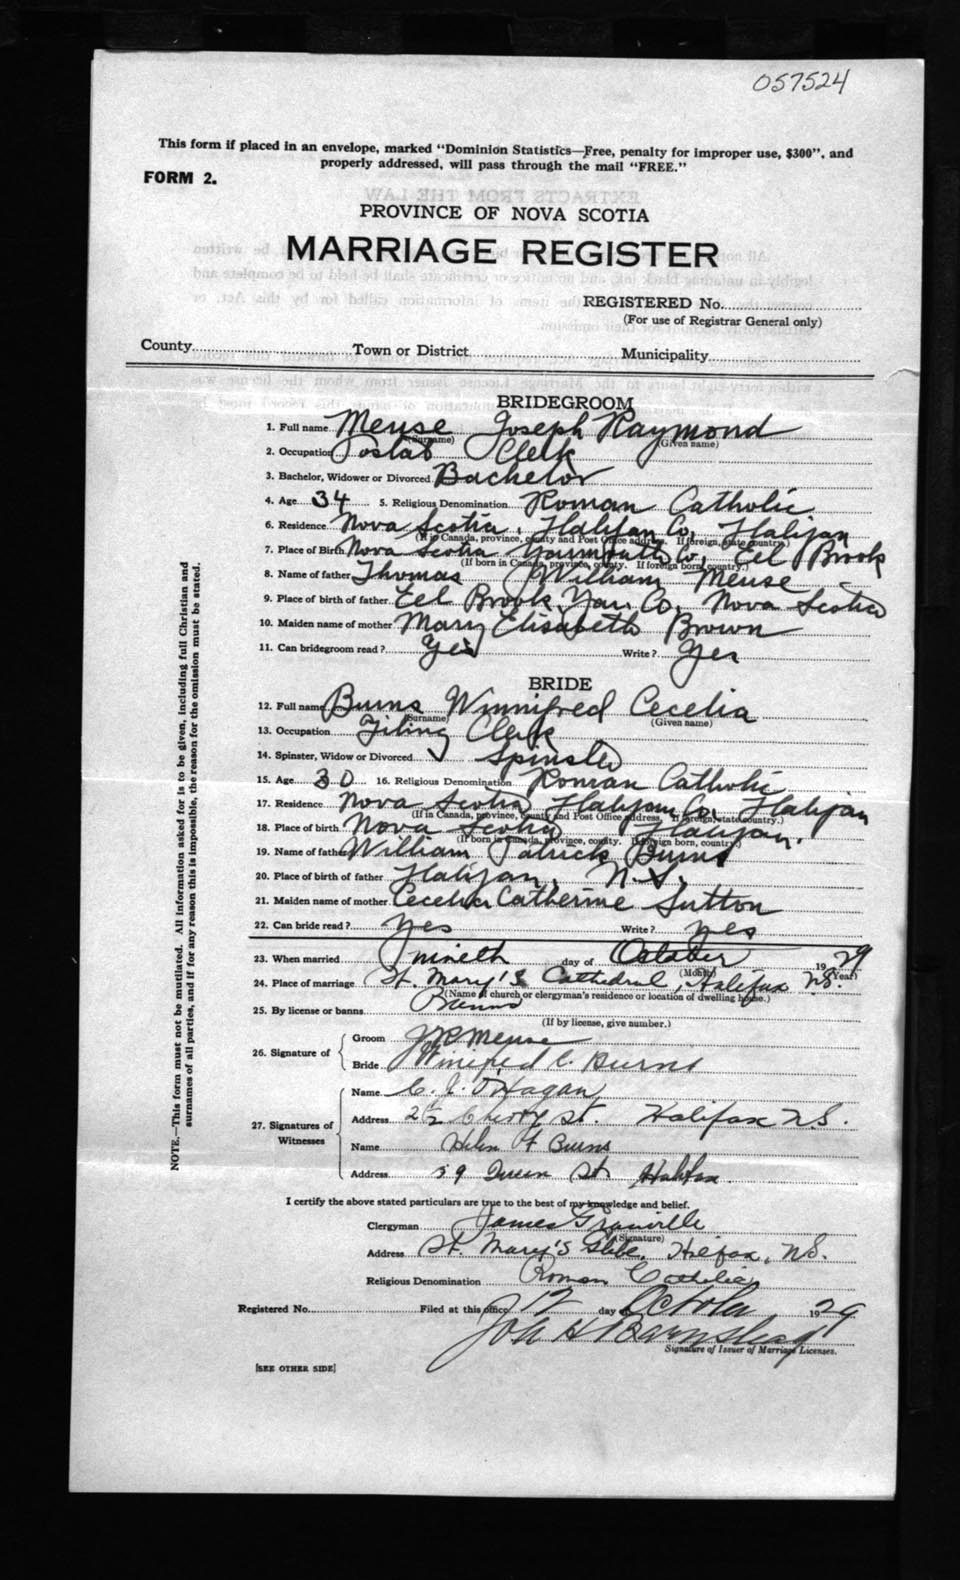 057524
This form if placed in an envelope, marked "Dominion Statistics—Free, penalty for improper use, $300", and
properly addressed, will pass through the mail "FREE."
FORM 2.
PROVINCE OF NOVA SCOTIA
MARRIAGE REGISTER
REGISTERED No.
(For use of Registrar General only)
County Town or District Municipality
BRIDEGROOM
1. Full name Meuse Joseph Raymond
(Surname) (Given name)
2. Occupation Postal Clerk
3. Bachelor, Widower or Divorced Bachelor
4. Age 34 5. Religious Denomination Roman Catholic
6. Residence Nova Scotia, Halifax Co, Halifax
(If in Canada, province, county and Post Office address. If foreign, state country.)
7. Place of Birth Nova Scotia Yarmouth Co, Eel Brook
(If born in Canada, province, county. If foreign born, country.)
8. Name of father Thomas William Meuse
9. Place of birth of father Eel Brook, Yar. Co, Nova Scotia
10. Maiden name of mother Mary Elisabeth Brown
11. Can bridegroom read? Yes Write? Yes
BRIDE
12. Full name Burns Winnifred Cecelia
(Surname) (Given name)
13. Occupation Filing Clerk
14. Spinster, Widow or Divorced Spinster
15. Age 30 16. Religious Denomination Roman Catholic
17. Residence Nova Scotia Halifax Co, Halifax
(If in Canada, province, county and Post Office address. If foreign, state country.)
18. Place of birth Nova Scotia Halifax.
(If born in Canada, province, county. If foreign born, country.)
19. Name of father William Patrick Burns
20. Place of birth of father Halifax, N.S.
21. Maiden name of mother Cecelia Catherine Sutton
22. Can bride read? Yes Write? Yes
23. When married nineth day of October 1929
(Month) (Year)
24. Place of marriage St. Mary's Cathedral, Halifax N.S.
(Name of church or clergyman's residence or location of dwelling house.)
25. By license or banns Banns
(If by license, give number.)
26. Signature of
Groom Meuse
Bride Winifred C. Burns
27. Signatures of Witnesses
Name C. J. O'Hagan
Address Cherry St. Halifax N.S.
Name Helen F Burns
Address 59 Queen St. Halifax.
I certify the above stated particulars are true to the best of my knowledge and belief.
Clergyman James Granville
(Signature)
Address St. Mary's Glebe, Halifax, N.S.
Religious Denomination Roman Catholic
Registered No. Filed at this office 12 day of October 1929
H Barnstead
Signature of Issuer of Marriage Licenses.
[SEE OTHER SIDE]
NOTE.—This form must not be mutilated. All information asked for is to be given, including full Christian and
surnames of all parties, and if for any reason this is impossible, the reason for the omission must be stated.